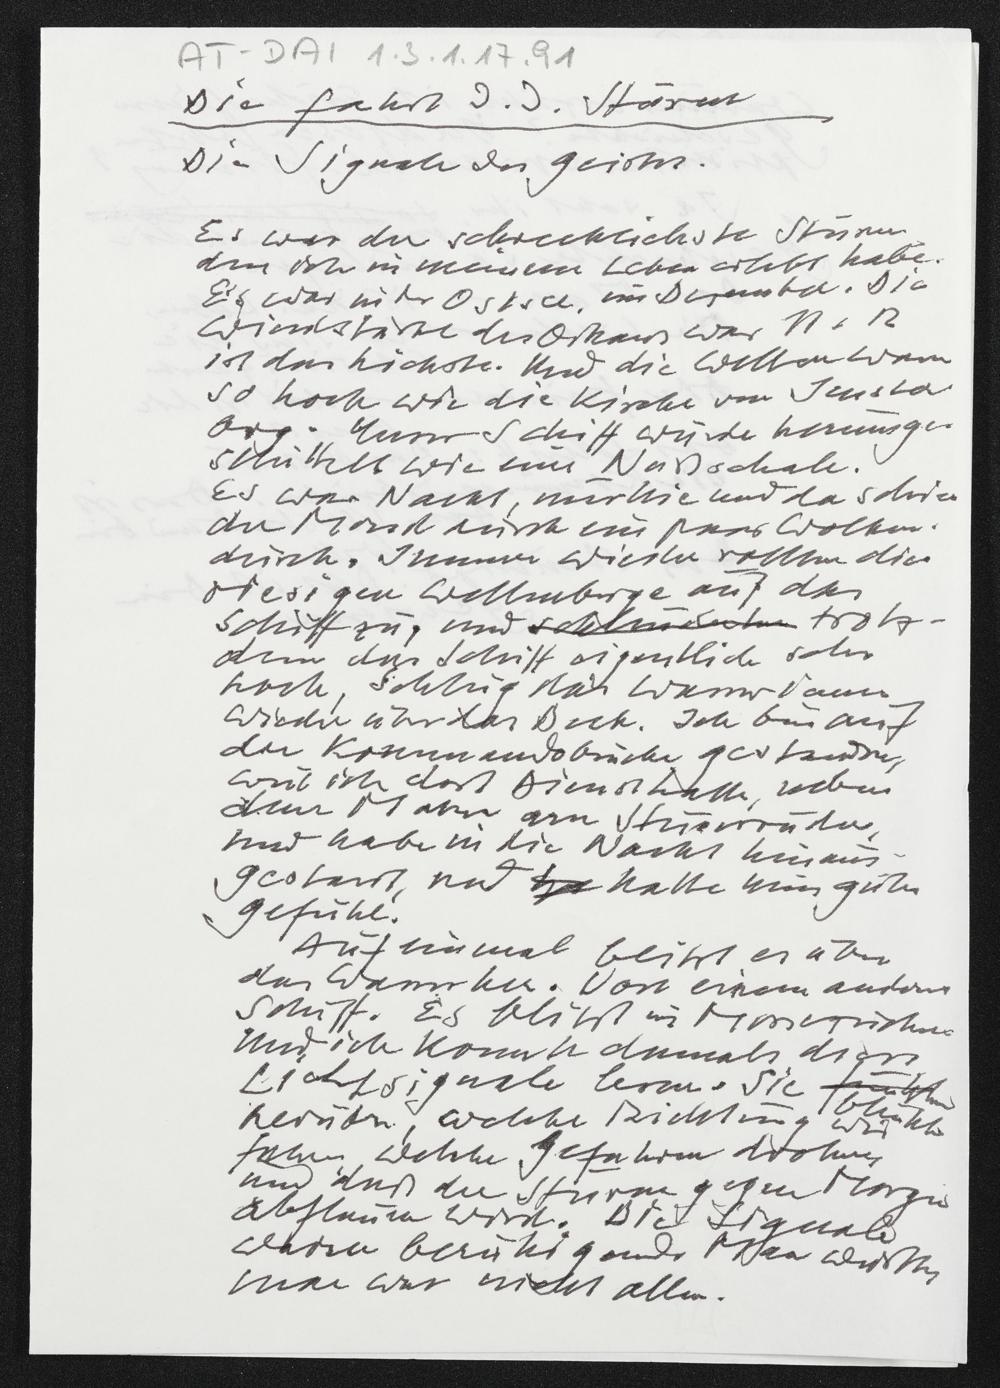 AT-DAI 1.3.1.17.91
Die Fahrt J. J. Sturm
Die Signale des Geistes.
Es war der schrecklichste Sturm
den ich in meinem Leben erlebt habe.
Es war in der Ostsee, im Dezember. Die
Windstärke des Orkans war 11, 12
ist das höchste. Und die Wellen waren
so hoch wie die Kirche von
Unser Schiff wurde herumge-
schüttelt wie eine Nußschale.
Es war Nacht, nur hie und da schien
der Mond durch ein paar Wolken
durch. Immer wieder rollten die
riesigen Wellenberge auf das
Schiff zu, und schleuderten trotz-
dem das Schiff eigentlich sehr
hoch, schlug das Wasser dann
wieder über das Deck. Ich bin auf
der Kommandobrücke gestanden,
weil ich dort Dienst hatte, neben
dem Mann am Steuerruder,
und habe in die Nacht hinaus-
gestarrt, und ha hatte kein gutes
Gefühl.
Auf einmal blitzt es über
das Wasser her. Von einem anderen
Schiff. Es blitzt in Morsezeichen
Und ich konnte damals diese
Lichtsignale lesen. Sie
blinkte
herüber, welche Richtung wir
fahren, welche Gefahren drohen
und daß der Sturm gegen Morgen
abflauen wird. Die Signale
waren beruhigend. Man wußte,
man war nicht allein.